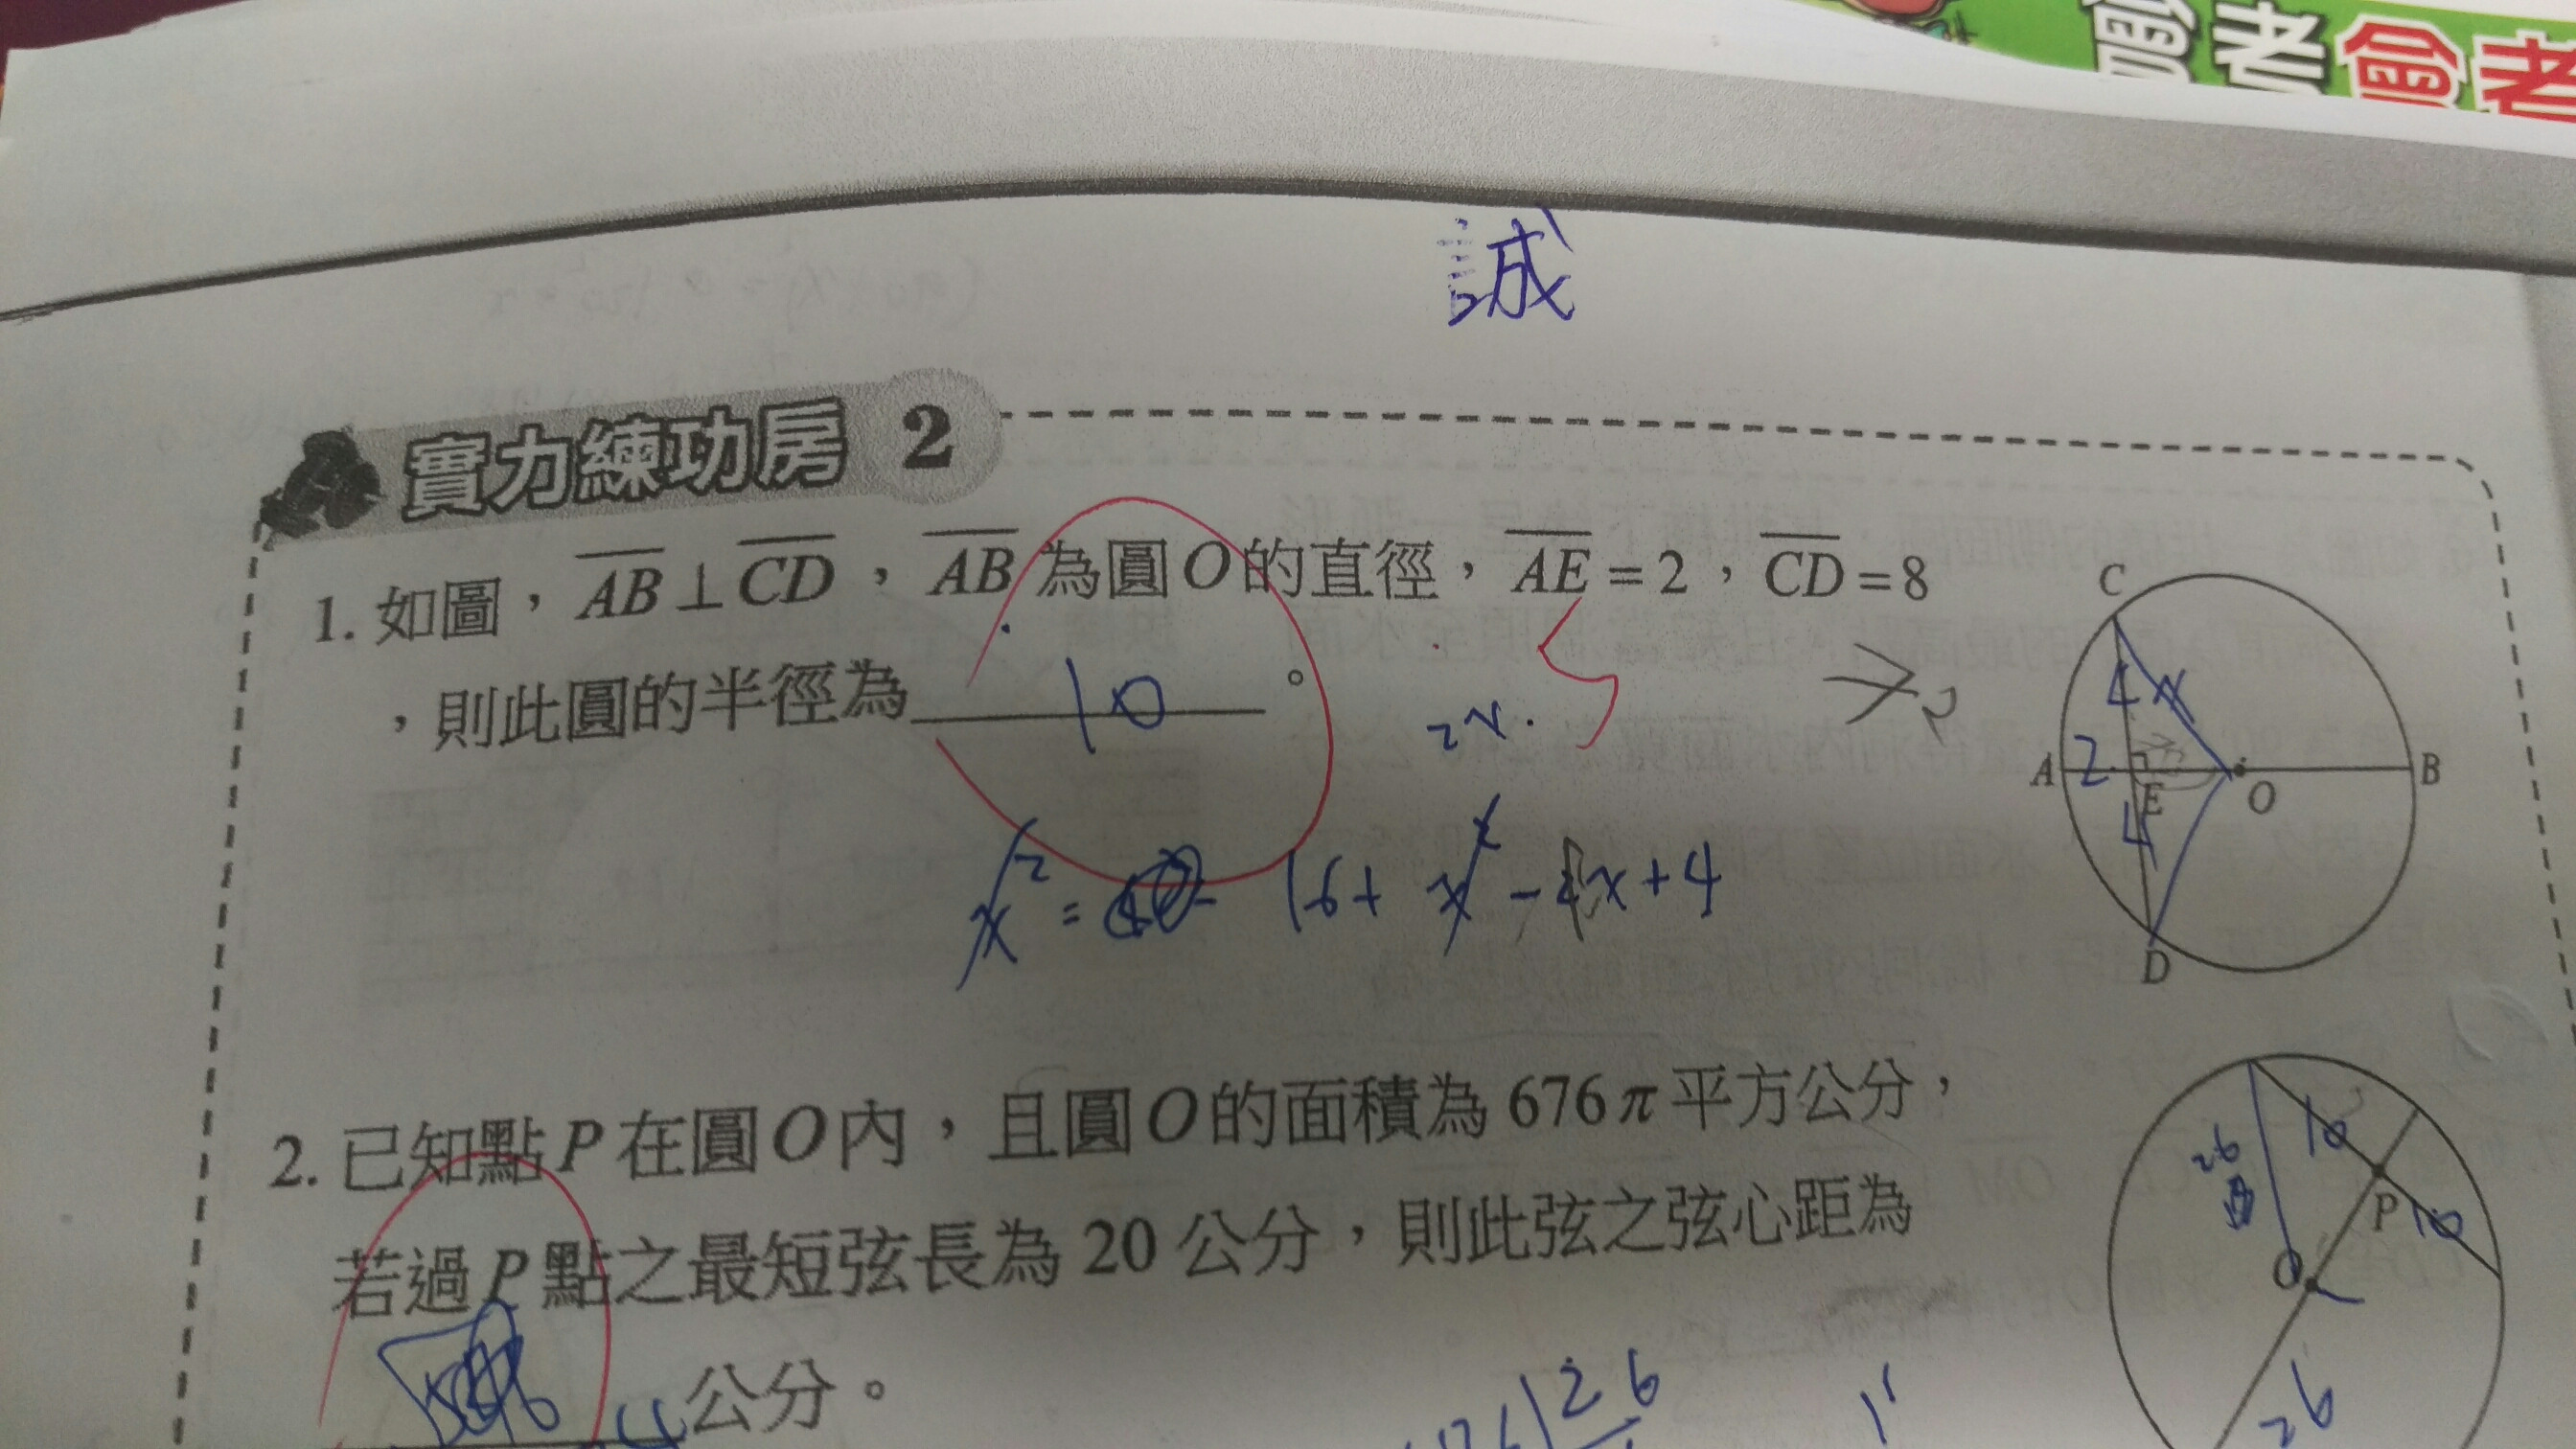 誠
實力練功房 2
1. 如圖，AB⊥CD，AB 為圓O的直徑，AE=2，CD=8
，則此圓的半徑為 10 。
2x.
x² = 16+ x² - 4x+4
C
4 x
A 2 E O B
4
D
2. 已知點P在圓O內，且圓O的面積為 676π平方公分，
若過P點之最短弦長為 20 公分，則此弦之弦心距為
公分。
26
10
P 10
O
26
26